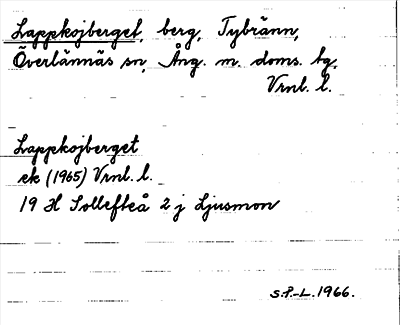 Lappkojberget, berg, Tybränn,
Överlännäs sn, Ång. m. doms. tg.
Vrnl. l.
Lappkojberget
ek (1965) Vrnl. l.
19 H Sollefteå 2 j Ljusmon
S.P.-L. 1966.